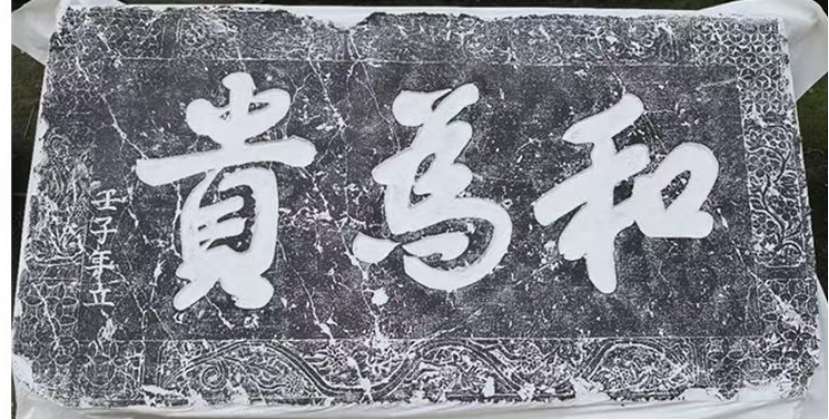 和為貴
壬子年立